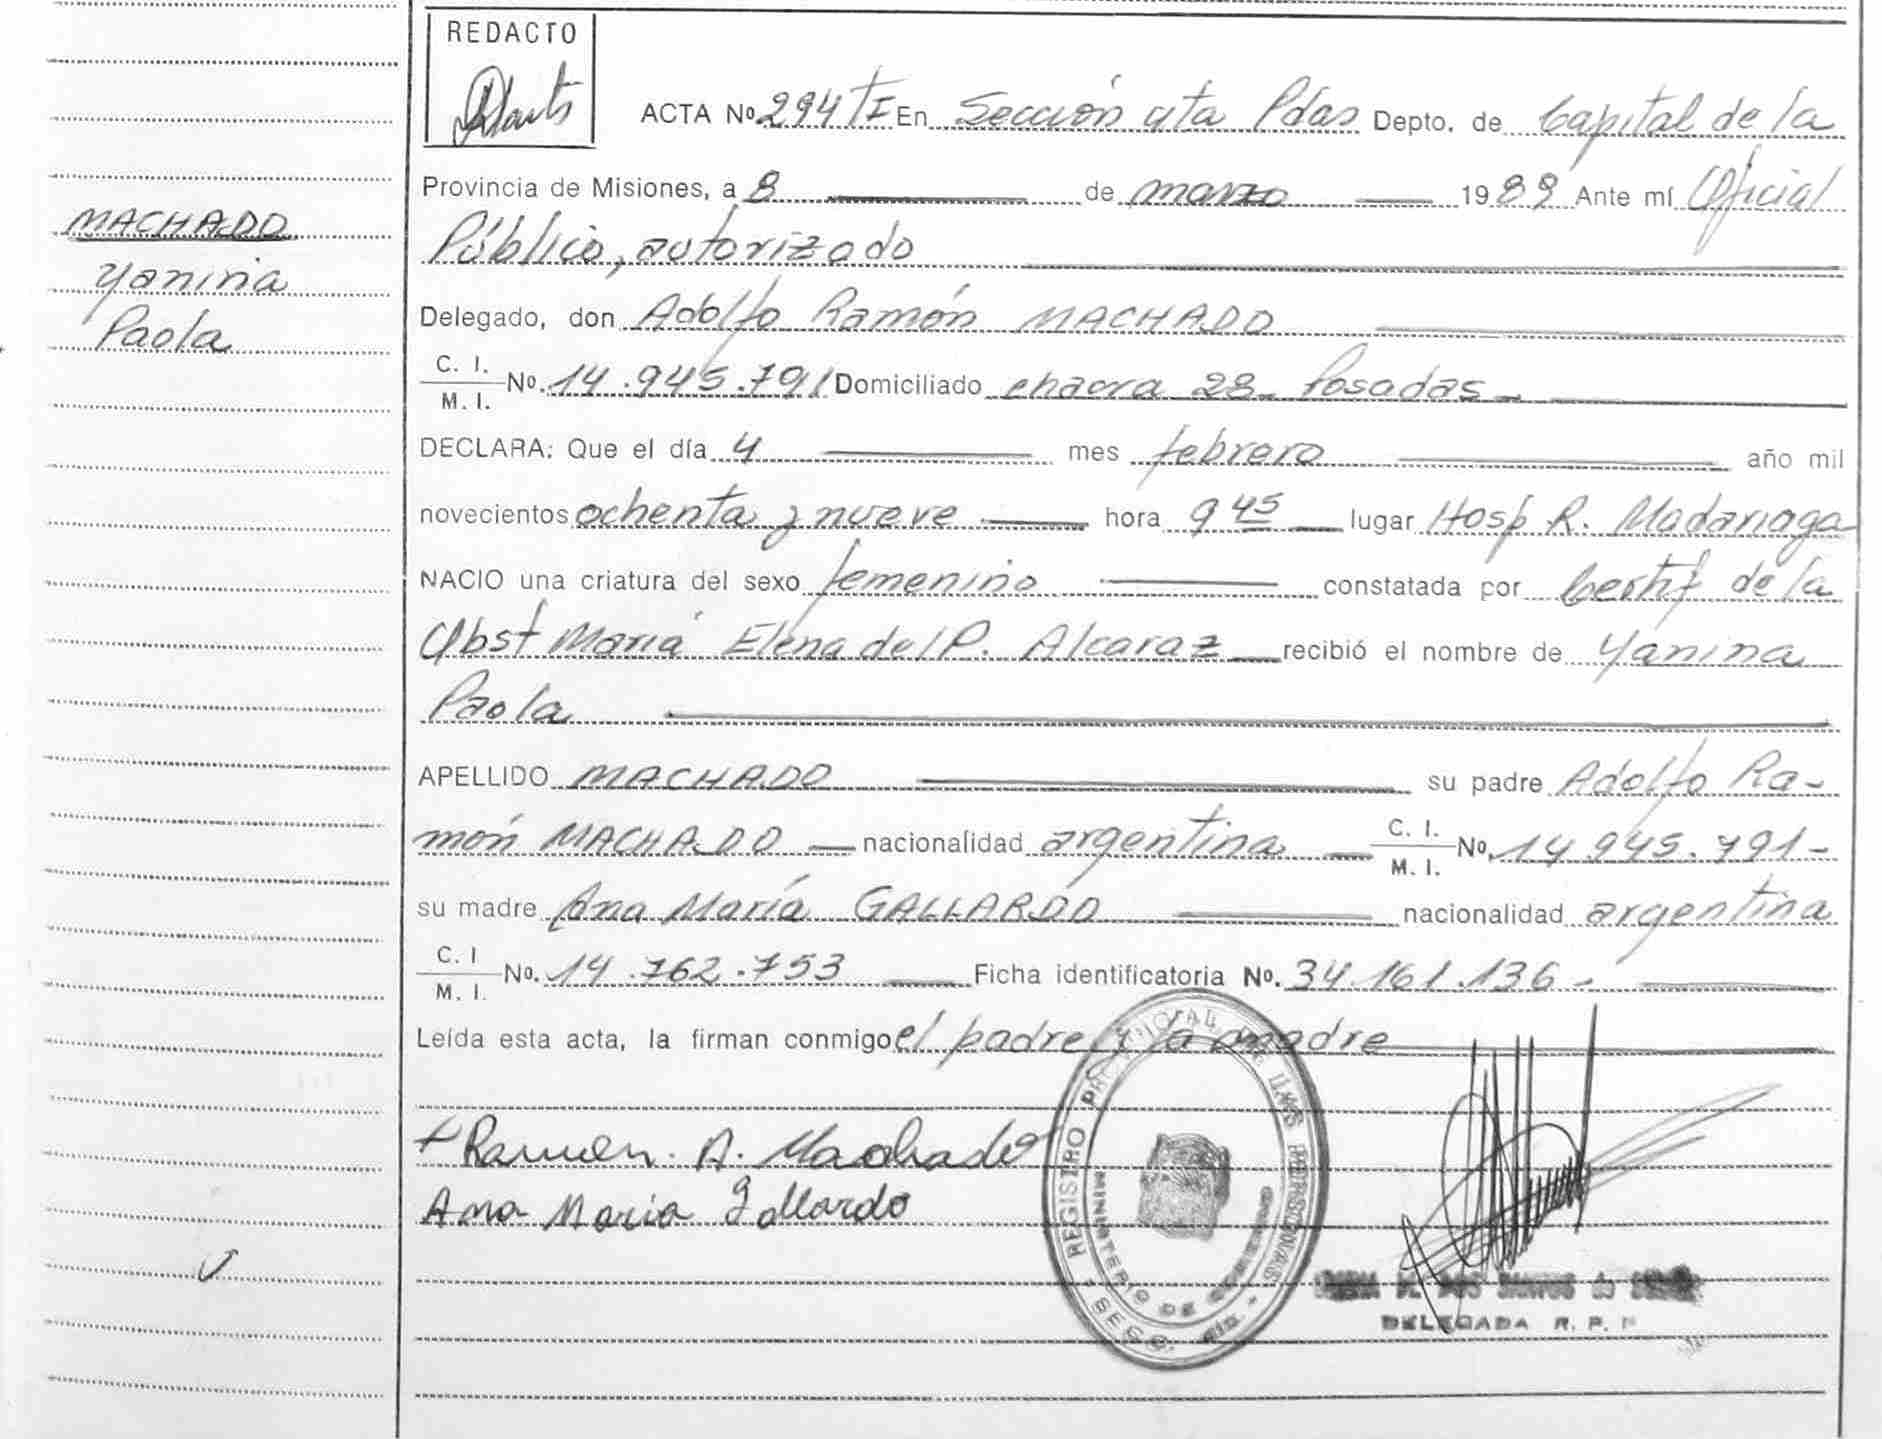 REDACTO
ACTA Nº 294 TI En Sección 4ta Pdas Depto. de Capital de la
Provincia de Misiones, a 8 de marzo 1989 Ante mí Oficial
Público, autorizado
MACHADO
Yanina
Paola
Delegado, don Adolfo Ramón MACHADO
C. I.
M. I. Nº. 14.945.791 Domiciliado chacra 28 - Posadas -
DECLARA: Que el día 4 mes febrero año mil
novecientos ochenta y nueve hora 9 45 lugar Hosp R. Madariaga
NACIO una criatura del sexo femenino constatada por Certif de la
Obst María Elena del P. Alcaraz recibió el nombre de Yanina
Paola
APELLIDO MACHADO su padre Adolfo Ra-
món MACHADO nacionalidad argentina C. I.
M. I. Nº. 14.945.791-
su madre Ana María GALLARDO nacionalidad argentina
C. I
M. I. Nº. 14.762.753 Ficha identificatoria Nº. 34.161.136 -
Leída esta acta, la firman conmigo el padre y la madre
Ramón. A. Machado
Ana Maria Gallardo
REGISTRO PROVINCIAL DE LAS PERSONAS
MINISTERIO DE GOBIERNO
DOS SANTOS de
DELEGADA R. P.